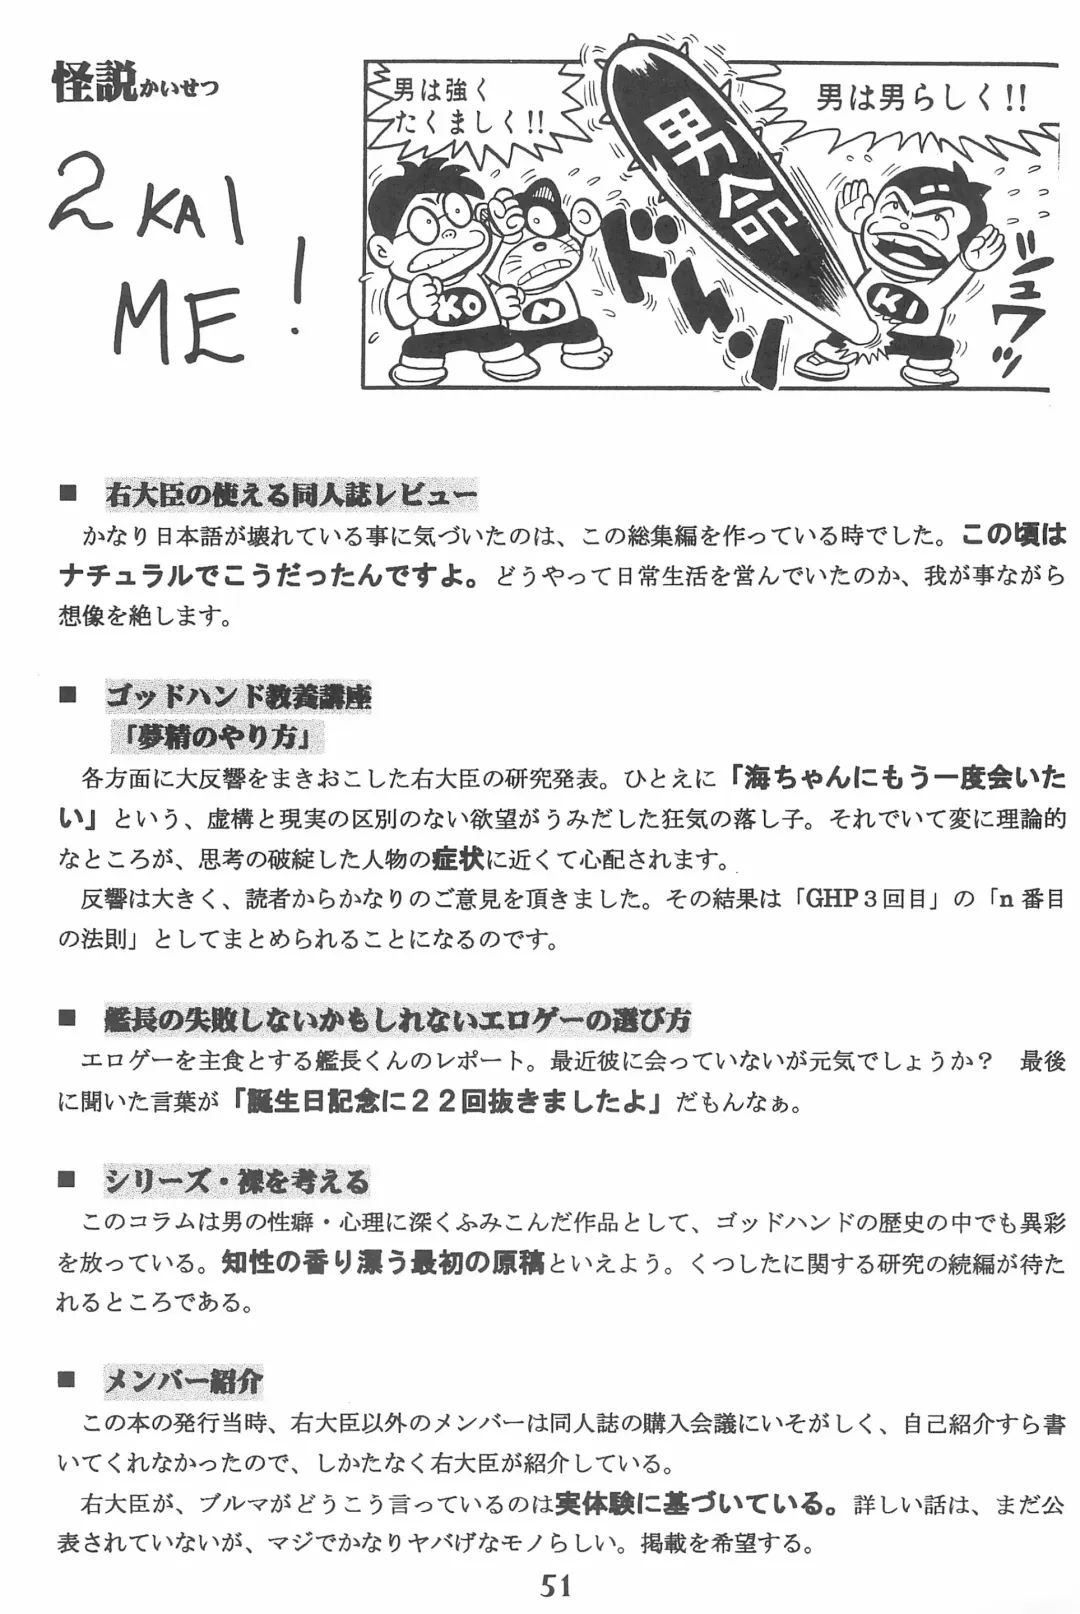 怪説かいせつ
2 KAI
ME!
男は強く
たくましく!!
男命
男は男らしく!!
KO
N
KI
ドんッ
ジュワッ
■ 右大臣の使える同人誌レビュー
かなり日本語が壊れている事に気づいたのは、この総集編を作っている時でした。この頃は
ナチュラルでこうだったんですよ。どうやって日常生活を営んでいたのか、我が事ながら
想像を絶します。
■ ゴッドハンド教養講座
「夢精のやり方」
各方面に大反響をまきおこした右大臣の研究発表。ひとえに「海ちゃんにもう一度会いた
い」という、虚構と現実の区別のない欲望がうみだした狂気の落し子。それでいて変に理論的
なところが、思考の破綻した人物の症状に近くて心配されます。
反響は大きく、読者からかなりのご意見を頂きました。その結果は「GHP3回目」の「n番目
の法則」としてまとめられることになるのです。
■ 艦長の失敗しないかもしれないエロゲーの選び方
エロゲーを主食とする艦長くんのレポート。最近彼に会っていないが元気でしょうか? 最後
に聞いた言葉が「誕生日記念に22回抜きましたよ」だもんなぁ。
■ シリーズ・裸を考える
このコラムは男の性癖・心理に深くふみこんだ作品として、ゴッドハンドの歴史の中でも異彩
を放っている。知性の香り漂う最初の原稿といえよう。くつしたに関する研究の続編が待た
れるところである。
■ メンバー紹介
この本の発行当時、右大臣以外のメンバーは同人誌の購入会議にいそがしく、自己紹介すら書
いてくれなかったので、しかたなく右大臣が紹介している。
右大臣が、ブルマがどうこう言っているのは実体験に基づいている。詳しい話は、まだ公
表されていないが、マジでかなりヤバげなモノらしい。掲載を希望する。
51